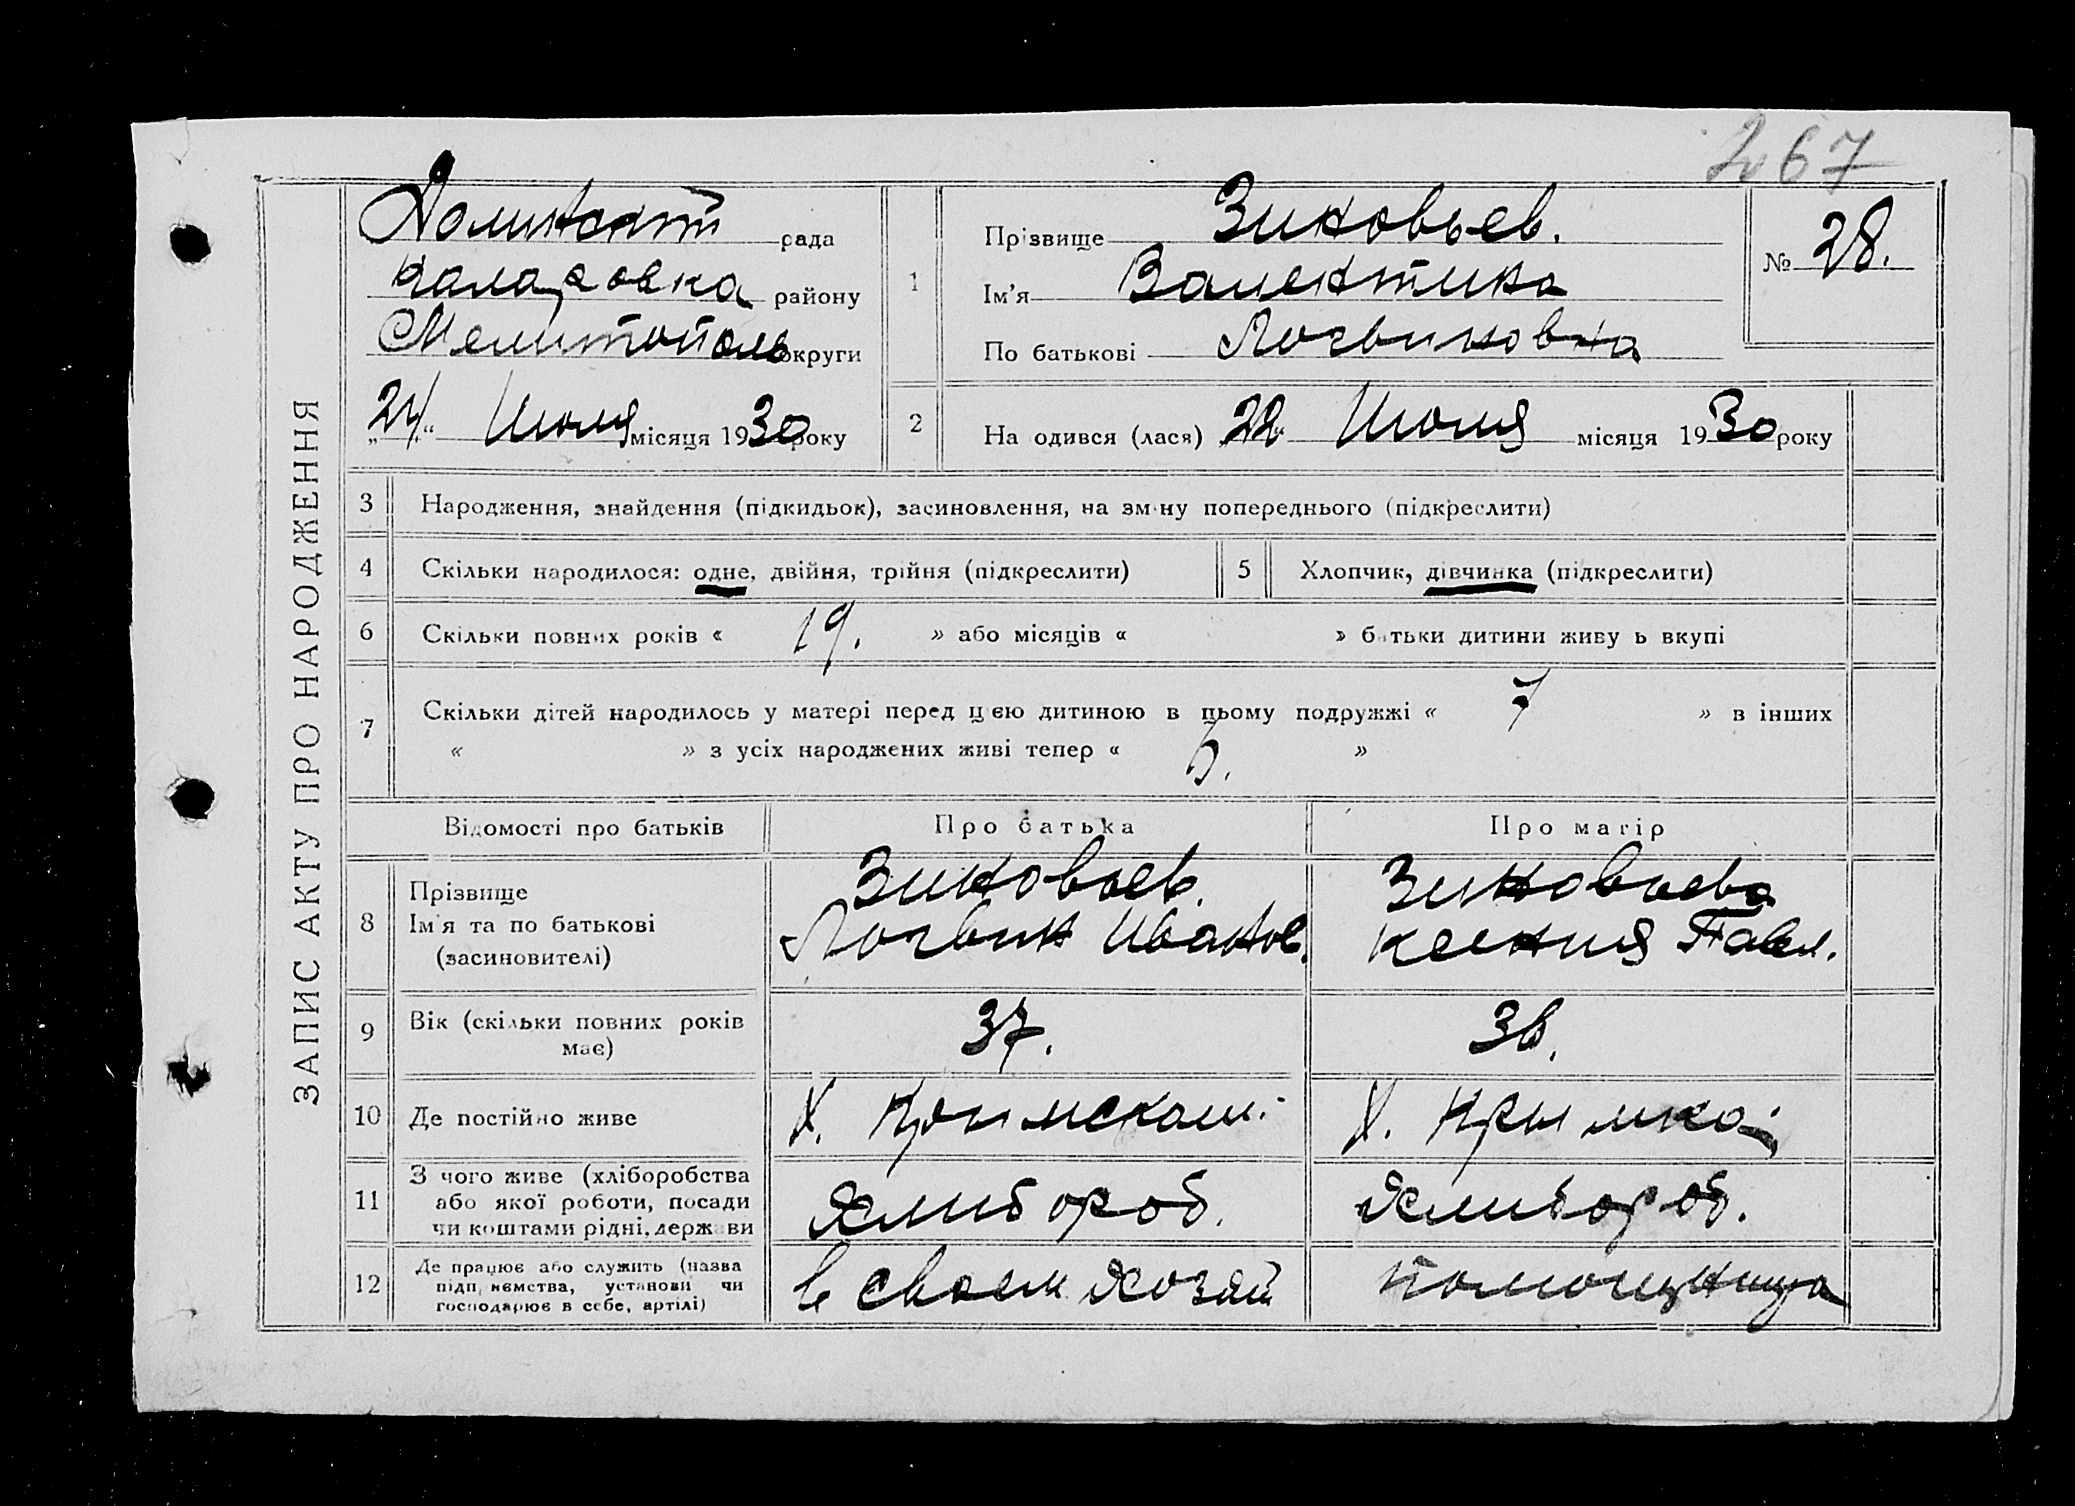 267
ЗАПИС АКТУ ПРО НАРОДЖЕННЯ
рада
району
Мелитополь округи
24 Июля місяця 1930 року
1
Прізвище Зиновьев.
Ім'я Валентина
По батькові Логвиновна
№ 28.
2
На одився (лася) 22 Июля місяця 1930 року
3 Народження, знайдення (підкидьок), засиновлення, на зміну попереднього (підкреслити)
4 Скільки народилося: одне, двійня, трійня (підкреслити)
5 Хлопчик, дівчинка (підкреслити)
6 Скільки повних років « 19. » або місяців « » батьки дитини живу ь вкупі
7 Скільки дітей народилось у матері перед цією дитиною в цьому подружжі « 7 » в інших
« » з усіх народжених живі тепер « »
Відомості про батьків Про батька Про матір
8
Прізвище
Ім'я та по батькові
(засиновителі)
Зиновьев.
Логвин Иванов.
Зиновьева
Ксения Павл.
9 Вік (скільки повних років
має)
37.
36.
10 Де постійно живе Х. Х.
11 З чого живе (хліборобства
або якої роботи, посади
чи коштами рідні, держави
Хлибороб.
Хлибороб.
12 Де працює або служить (назва
підприємства, установи чи
господарює в себе, артілі)
в своем хозяй
помощница